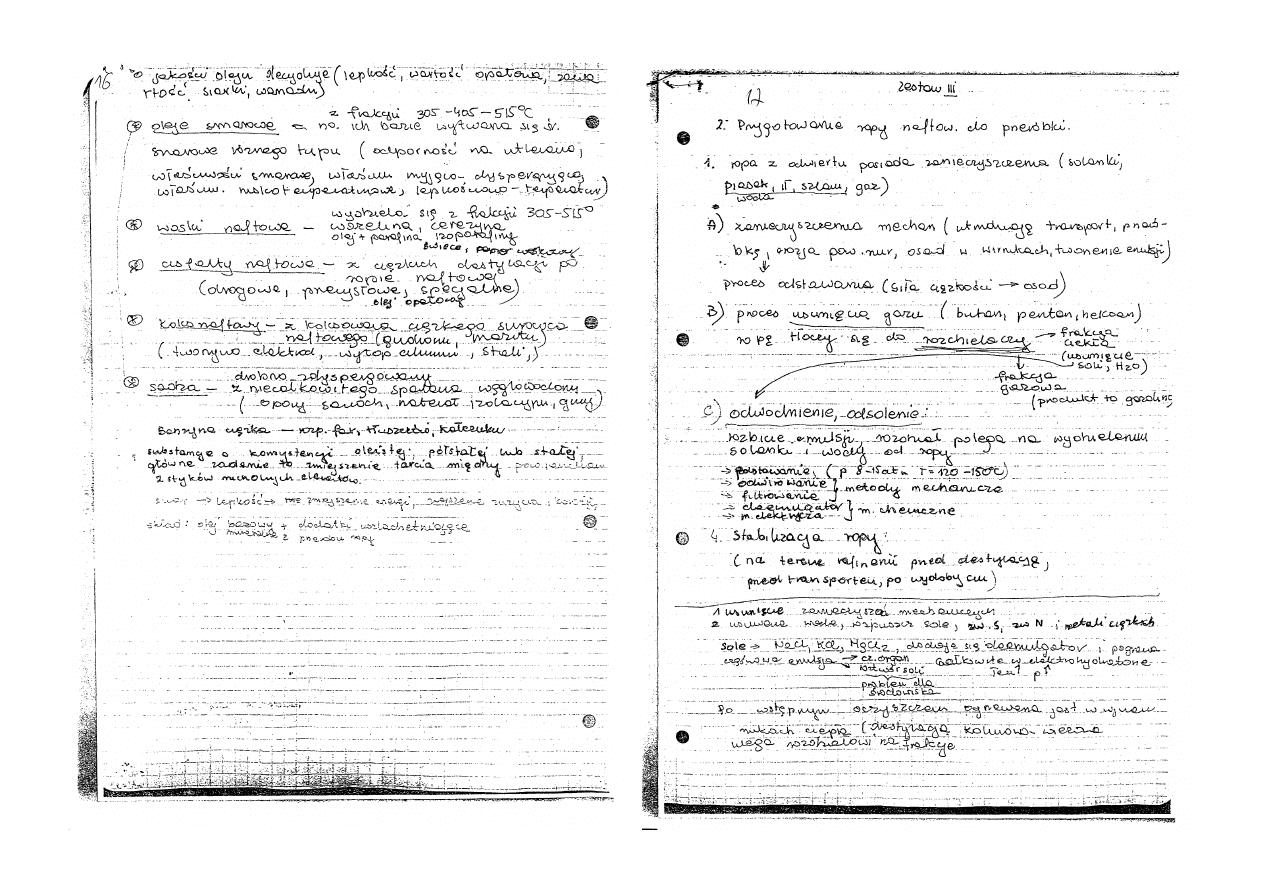 16
o jakości oleju decyduje (lepkość, wartość opałowa, zawa
rtość siarki, wanadu)
z frakcji 305-405-515°C
oleje smarowe = na ich bazie wytwarza się śr.
smarowe różnego typu (odporność na utlenianie,
właściwości smarne, właśc. myjąco-dyspergujące
właściw. niskotemperaturowe, lepkościowo-temperatur)
wydziela się z frakcji 305-515°
woski naftowe – wazelina, cerezyna
olej + parafina, izoparafiny
świece,
asfalty naftowe – z ciężkich destylacji po
ropie naftowej
(drogowe, przemysłowe, specjalne)
olej opałowy
koks naftowy – z koksowania ciężkiego surowca
naftowego (gudronu, mazutu)
(tworzywo elektrod, wytop alumin, stali,)
drobno zdyspergowany
sadza – z niecałkowitego spalania węglowodorów
(opony samoch, materiał izolacyjny, gumy)
Benzyna ciężka – rozp. farb, tłuszczów, kauczuku
substancje o konsystencji oleistej, półstałej lub stałej
główne zadanie to zmniejszenie tarcia między powierzchniami
z styków ruchomych elementów.
smar → lepkość → zmniejszenie energii, zużycia, korozji
skład: olej bazowy + dodatki uszlachetniające
mineralne z przerobu ropy
17
Zestaw III
2. Przygotowanie ropy naftow. do przeróbki.
1. ropa z odwiertu posiada zanieczyszczenia (solanki,
piasek, ił, szlam, gaz)
woda
A) zanieczyszczenia mechan (utrudniają transport, przeró-
bkę, erozja pow. rur, osad w wirnikach, tworzenie emulsji)
proces odstawania (siła ciężkości → osad)
B) proces usunięcia gazu (butan, pentan, heksan)
ropę tłoczy się do rozdzielaczy
frakcja
ciekła
(usunięcie
soli, H2O)
frakcja
gazowa
(produkt to gazolina
C) odwodnienie, odsolenie:
rozbicie emulsji, rozdział polega na wydzieleniu
solanki i wody od ropy
→ odstawanie, (p 8-15atm T=120-150°C)
→ odwirowanie
→ filtrowanie } metody mechaniczne
→ deemulgator
→ m. elektrycza } m. chemiczne
4. Stabilizacja ropy:
(na terenie rafinerii przed destylacją,
przed transportem, po wydobyciu)
1 usunięcie zanieczyszcz mechanicznych
2 usuwanie woda, rozpuszcz sole, zw. S, zw N i metali ciężkich
sole → NaCl, KCl, MgCl2, dodaje się deemulgator i pogrzewa
emulsja → cz. organ
roztwór soli
całkowite w elektrohydratorze
Tem↑ p↑
problem dla
środowiska
Po wstępnym oczyszczeniu ogrzewana jest w wymien
nikach ciepła (destylacja kolumn
ulega rozdziałowi na frakcje